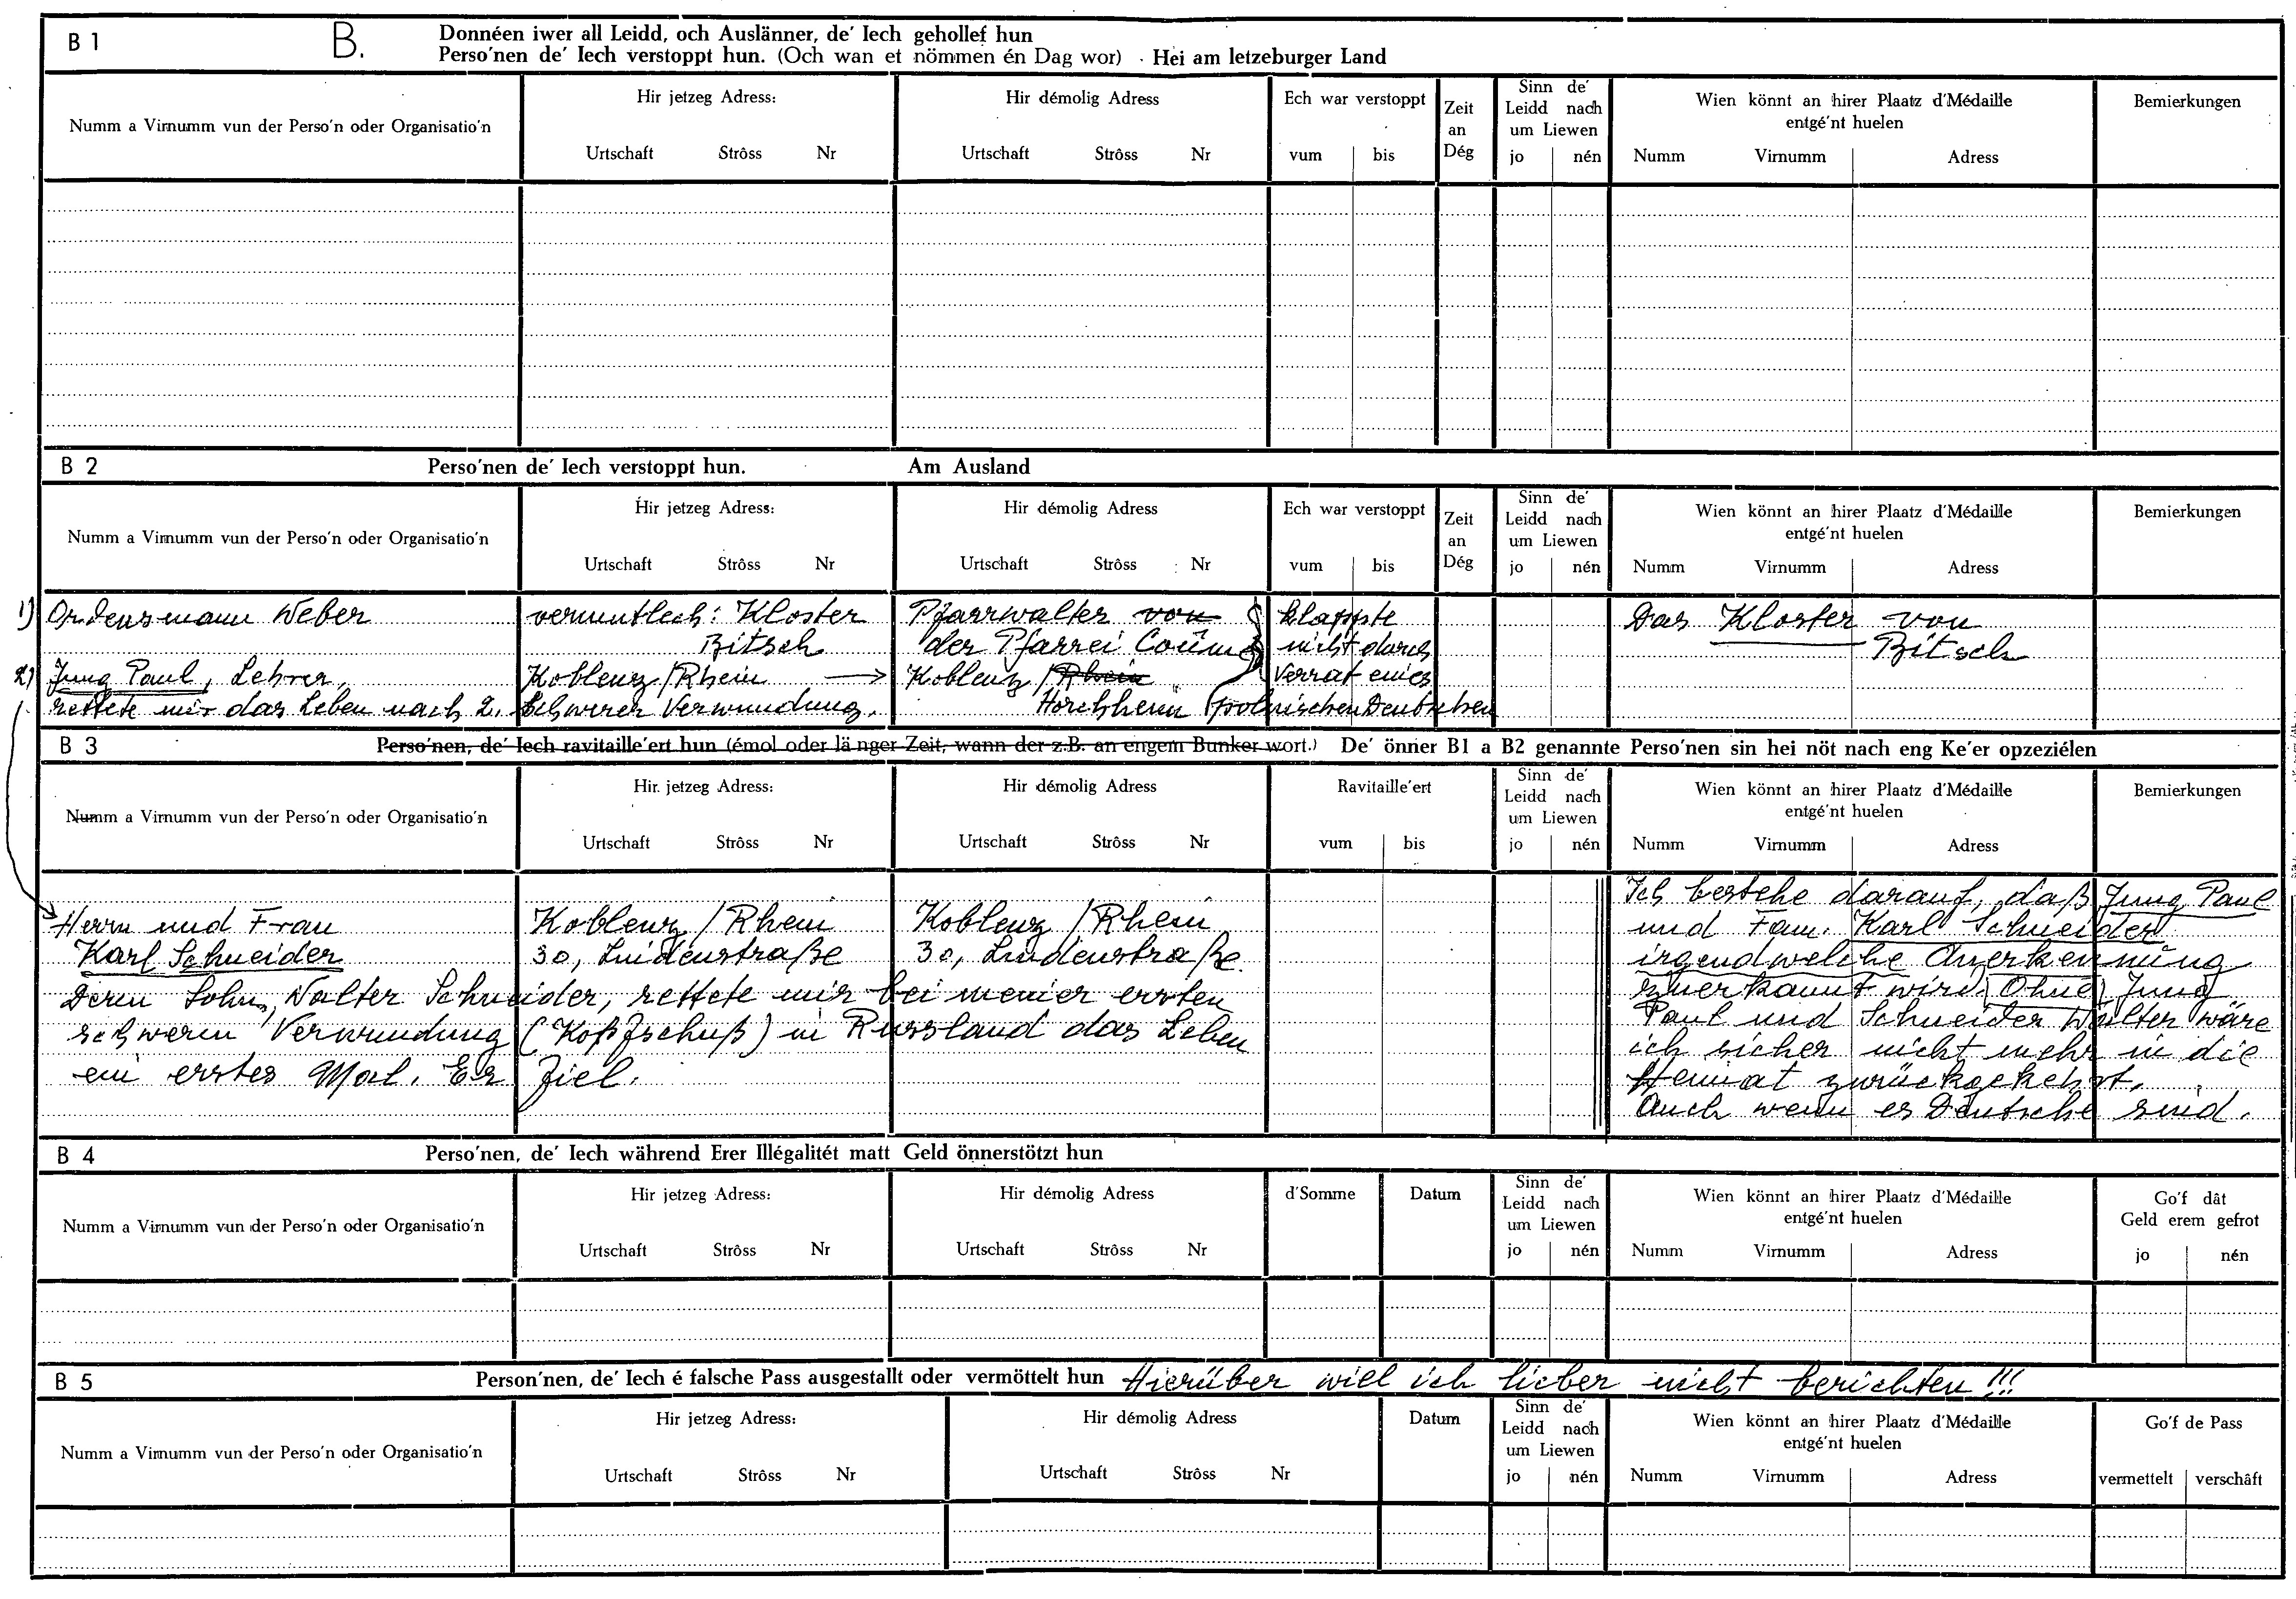 B 1
B.
Donnéen iwer all Leidd, och Auslänner, de' Iech gehollef hun
Perso'nen de' Iech verstoppt hun. (Och wan et nömmen én Dag wor) · Hei am letzeburger Land
Numm a Virnumm vun der Perso'n oder Organisatio'n
Hir jetzeg Adress:
Urtschaft Strôss Nr
Hir démolig Adress
Urtschaft Strôss Nr
Ech war verstoppt
vum bis
Zeit
an
Dég
Sinn de'
Leidd nach
um Liewen
jo nén
Wien könnt an hirer Plaatz d'Médaille
entgé'nt huelen
Numm Virnumm Adress
Bemierkungen
B 2
Perso'nen de' Iech verstoppt hun. Am Ausland
Numm a Virnumm vun der Perso'n oder Organisatio'n
Hir jetzeg Adress:
Urtschaft Strôss Nr
Hir démolig Adress
Urtschaft Strôss Nr
Ech war verstoppt
vum bis
Zeit
an
Dég
Sinn de'
Leidd nach
um Liewen
jo nén
Wien könnt an hirer Plaatz d'Médaille
entgé'nt huelen
Numm Virnumm Adress
Bemierkungen
1) Ordensmann Weber
vermutlech: Kloster
Bitsch
Pfarrwalter von
der Pfarrei Coûme
klappte
nicht durch
Verrat eines
polnischen Deutschen
Das Kloster von
Bitsch
2) Jung Paul, Lehrer,
Koblenz/Rhein →
Koblenz/Rhein
Horchheim
rettete mir das Leben nach 2. schwerer Verwundung.
B 3
Perso'nen, de' Iech ravitaille'ert hun (émol oder länger Zeit, wann der z.B. an engem Bunker wort.) De' önner B1 a B2 genannte Perso'nen sin hei nöt nach eng Ke'er opzeziélen
Numm a Virnumm vun der Perso'n oder Organisatio'n
Hir jetzeg Adress:
Urtschaft Strôss Nr
Hir démolig Adress
Urtschaft Strôss Nr
Ravitaille'ert
vum bis
Sinn de'
Leidd nach
um Liewen
jo nén
Wien könnt an hirer Plaatz d'Médaille
entgé'nt huelen
Numm Virnumm Adress
Bemierkungen
Herrn und Frau
Karl Schneider
Koblenz/Rhein
30, Lindenstraße
Koblenz/Rhein
30, Lindenstraße.
Deren Sohn, Walter Schneider, rettete mir bei meiner ersten
schweren Verwundung (Kopfschuß) in Russland das Leben
ein erstes Mal. Er fiel.
Ich bestehe darauf, daß Jung Paul
und Fam. Karl Schneider
irgendwelche Anerkennung
zuerkannt wird. Ohne Jung
Paul und Schneider Walter wäre
ich sicher nicht mehr in die
Heimat zurückgekehrt.
Auch wenn es Deutsche sind.
B 4
Perso'nen, de' Iech während Erer Illégalitét matt Geld önnerstötzt hun
Numm a Virnumm vun der Perso'n oder Organisatio'n
Hir jetzeg Adress:
Urtschaft Strôss Nr
Hir démolig Adress
Urtschaft Strôss Nr
d'Somme
Datum
Sinn de'
Leidd nach
um Liewen
jo nén
Wien könnt an hirer Plaatz d'Médaille
entgé'nt huelen
Numm Virnumm Adress
Go'f dât
Geld erem gefrot
jo nén
B 5
Person'nen, de' Iech é falsche Pass ausgestallt oder vermöttelt hun Hierüber will ich lieber nicht berichten!!!
Numm a Virnumm vun der Perso'n oder Organisatio'n
Hir jetzeg Adress:
Urtschaft Strôss Nr
Hir démolig Adress
Urtschaft Strôss Nr
Datum
Sinn de'
Leidd nach
um Liewen
jo nén
Wien könnt an hirer Plaatz d'Médaille
entgé'nt huelen
Numm Virnumm Adress
Go'f de Pass
vermettelt verschâft